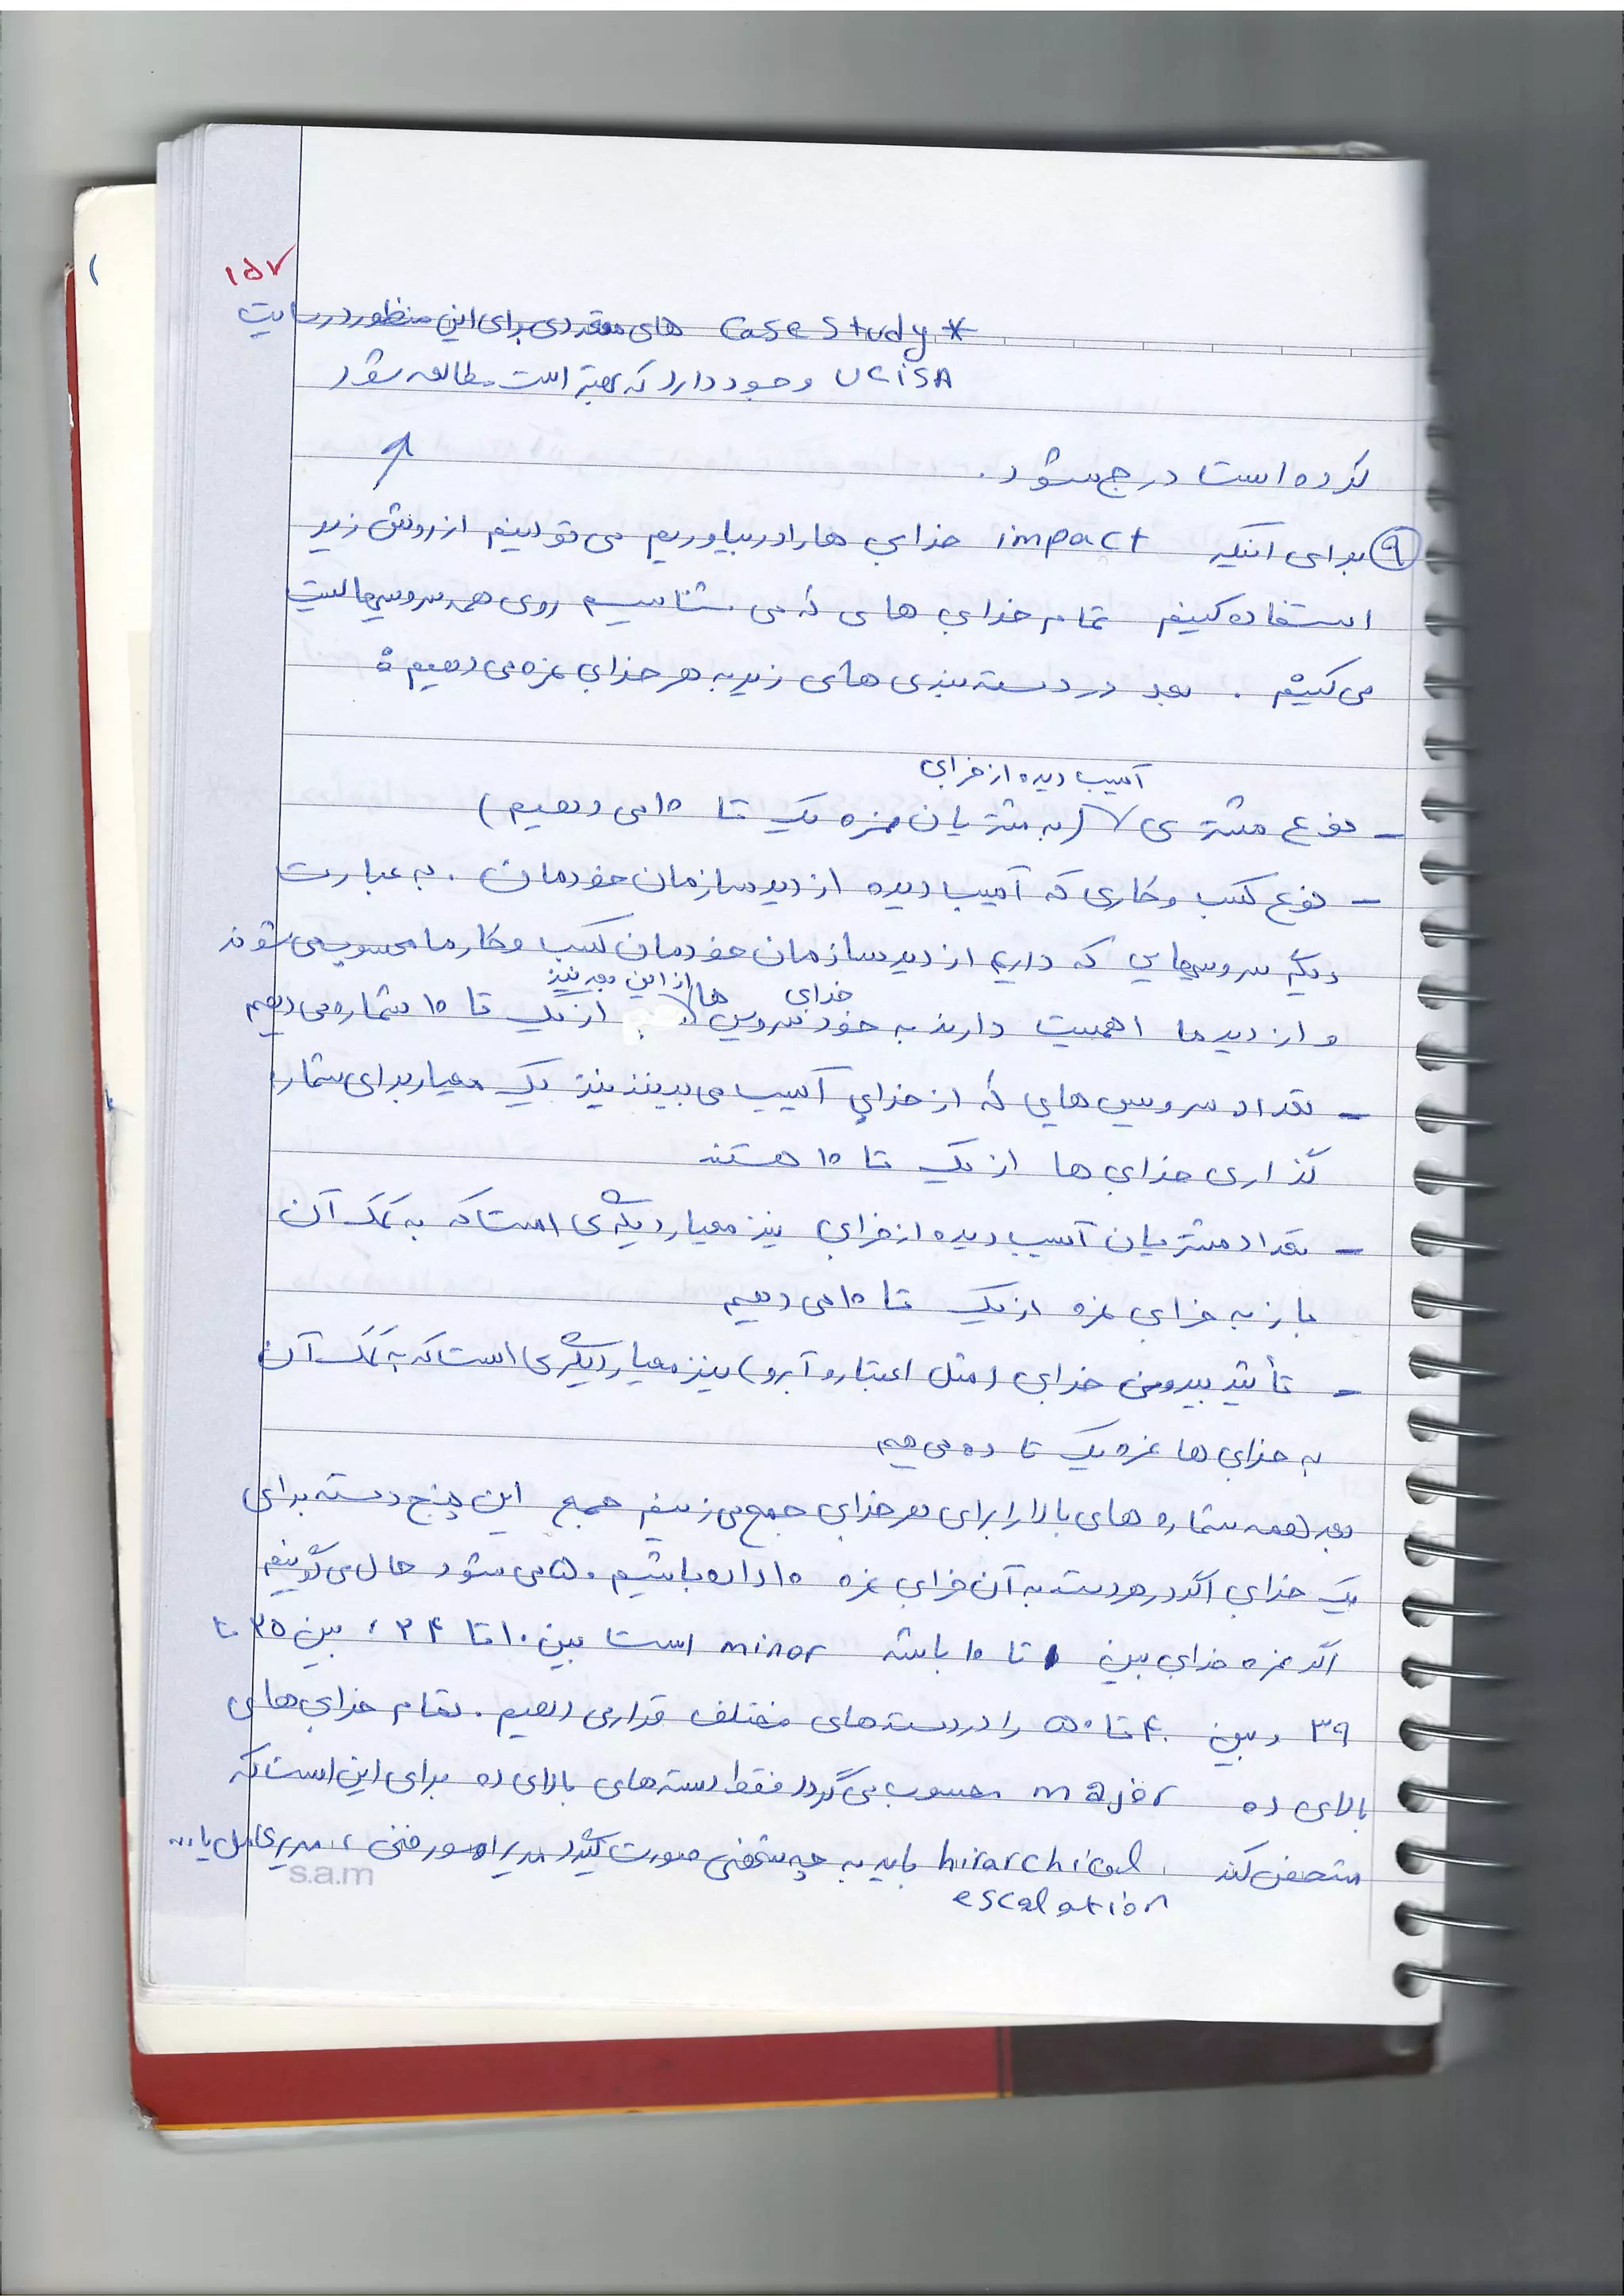 ۱۵۷
* Case study های متعددی برای این منظور در سایت
UCISA وجود دارد که بهتر است مطالعه شود
کرده است درج شود.
۹ برای اینکه impact خرابی ها را در بیاوریم می توانیم از روش زیر
استفاده کنیم تمام خرابی های که می شناسیم روی همه سرویسها لیست
می کنیم . بعد در دسته بندی های زیر به هر خرابی نمره می دهیم :
آسیب دیده از خرابی
- نوع مشتری (به مشتریان نمره یک تا ۱۰ می دهیم)
- نوع کسب و کاری که آسیب دیده از دید سازمان خودمان . به عبارت
دیگه سرویسهایی که داریم از دید سازمان خودمان کسب و کار ما محسوب می شوند
و از دید ما اهمیت دارند به خود خرابی سرویس ها از این بعد نیز از یک تا ۱۰ شماره می دهیم
- تعداد سرویس هایی که از خرابی آسیب می بینند نیز یک معیار برای شماره
گذاری خرابی ها از یک تا ۱۰ هستند
- تعداد مشتریان آسیب دیده از خرابی نیز معیار دیگه ی است که به کمک آن
باز به خرابی نمره از یک تا ۱۰ می دهیم
- تأثیر بیرونی خرابی (مثل اعتبار و آبرو) نیز معیار دیگری است که به کمک آن
به خرابی ها نمره یک تا ده می دهیم
بعد همه شماره های بالا را برای هر خرابی جمع می زنیم جمع این پنج دسته برای
یک خرابی اگر در هر دسته به آن خرابی نمره ۱۰ داده باشیم ۵۰ می شود حال می گوییم
اگر نمره خرابی بین ۱ تا ۱۰ باشه minor است بین ۱۰ تا ۲۴ ، بین ۲۵ تا
۳۹ و بین ۴۰ تا ۵۰ را در دسته های مختلف قرار می دهیم . تمام خرابی های
بالای ده major محسوب می گردد فقط دسته های بالای ده برای این است که
مشخص کند hirarchical باید به چه شخصی صورت گیرد مدیر امور فنی ، مدیر عامل یا ...
escalation
s.a.m